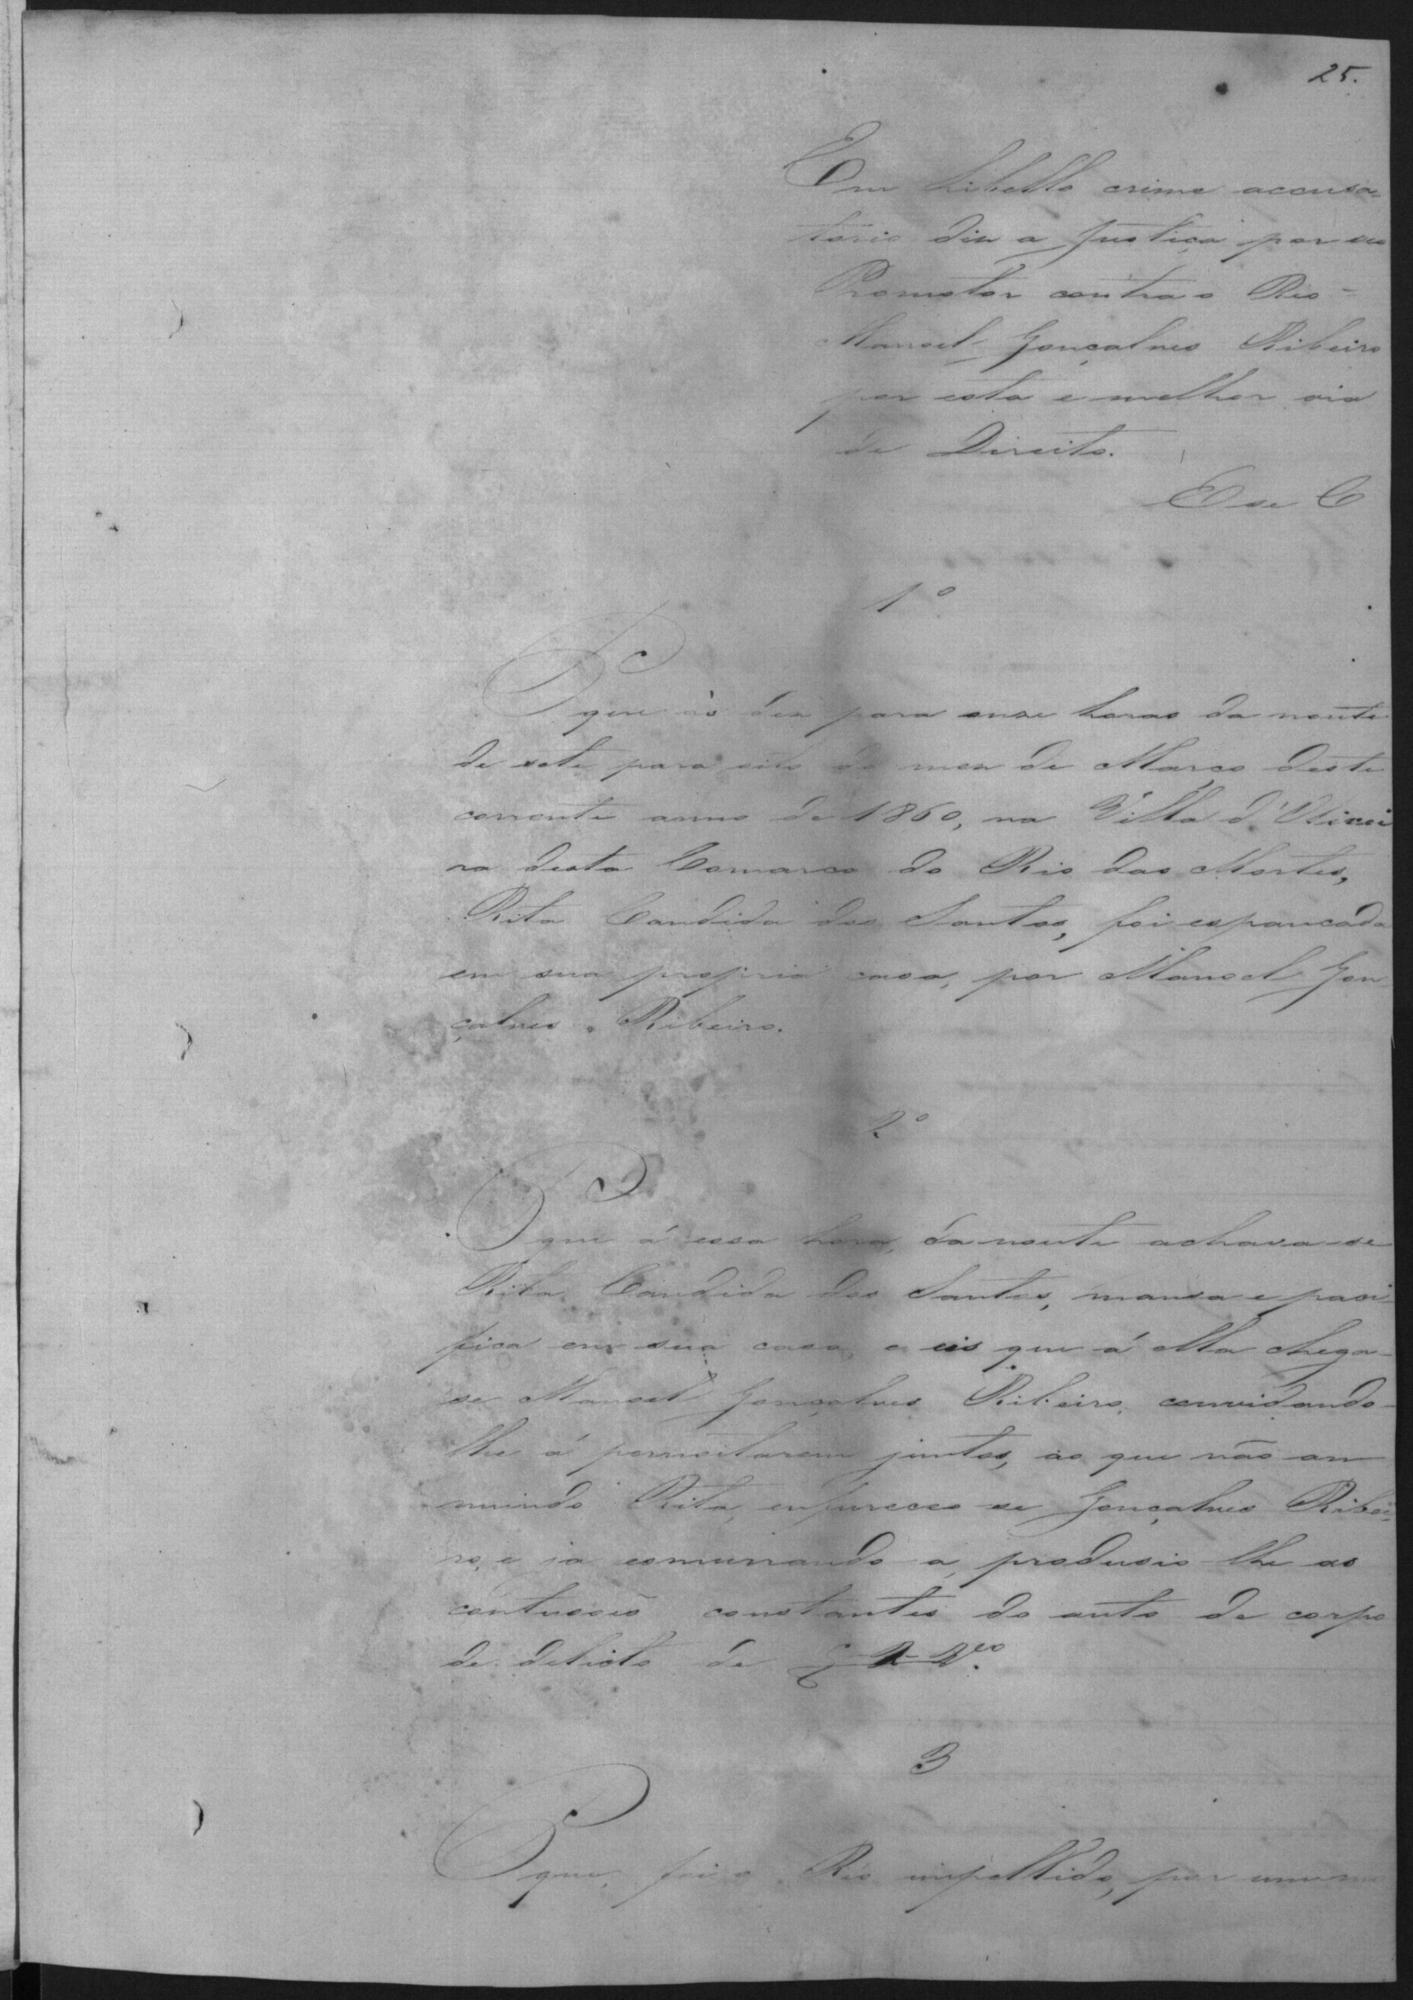 25.
Em Libello crime accusa-
torio diz a Justiça por seo
Promotor contra o Reo
Manoel Gonçalves Ribeiro
por esta e melhor via
de Direito.
E se C
1º
P que ás dez para onze horas da noute
de sete para oito do mez de Março deste
corrente anno de 1860, na Villa d'Olivei
ra desta Comarca do Rio das Mortes,
Rita Candida dos Santos, foi espancada
em sua propria casa, por Manoel Gon
çalves Ribeiro.
2º
P que á essa hora da noute achava-se
Rita Candida dos Santos, mansa e paci
fica em sua casa, e eis que á ella chega-
se Manoel Gonçalves Ribeiro, convidando-
lhe á pernoitarem juntos, ao que não an
nuindo Rita, enfureceo-se Gonçalves Ribei-
ro, e ja esmurrando-a, produsio-lhe as
contusoẽs constantes do auto de corpo
de delicto de
3
P que, foi o Reo impellido, por um